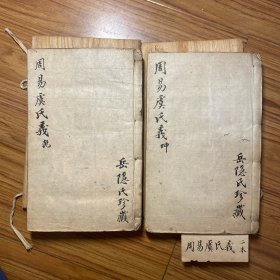 周易虞氏義
岳隐氏珍藏
周易虞氏義
岳隐氏珍藏
周易虞氏義
二本